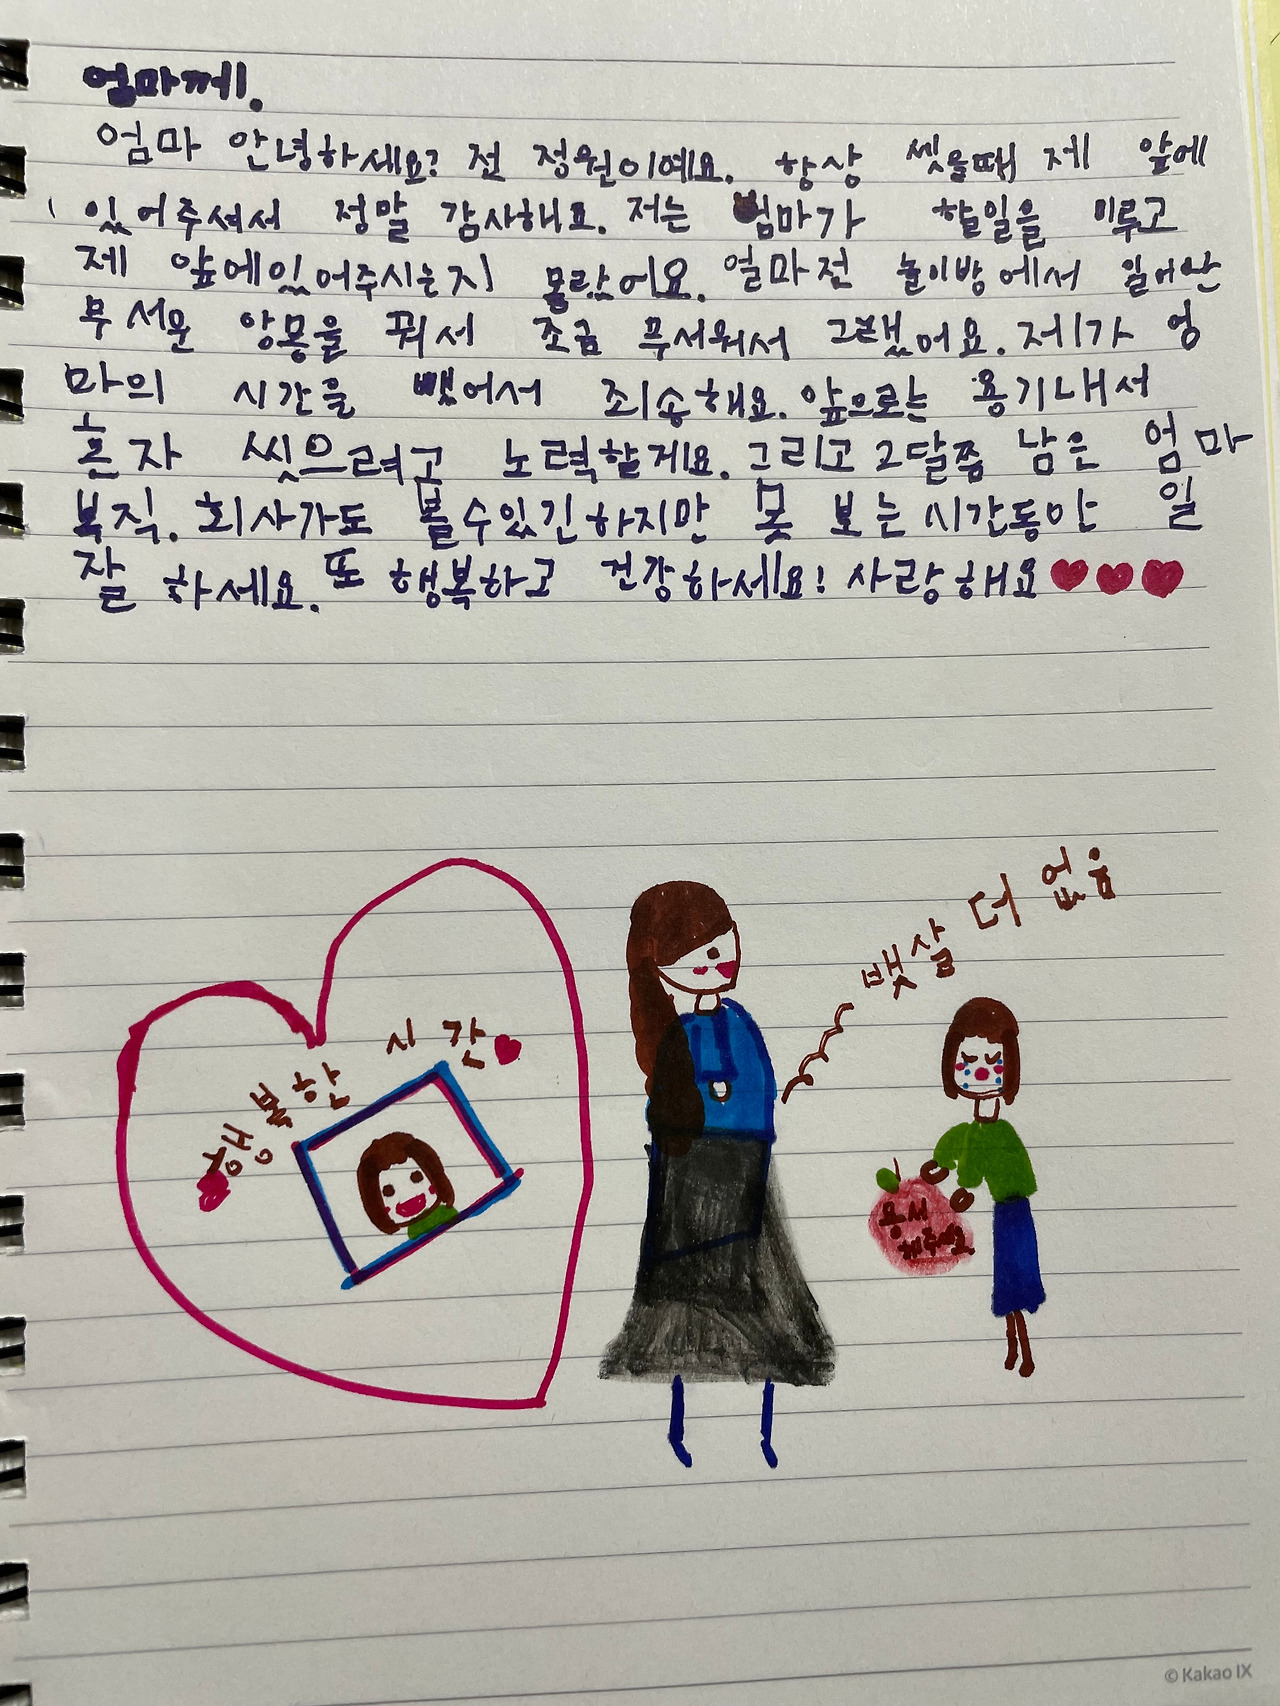 엄마께.
엄마 안녕하세요? 전 정원이예요. 항상 씻을때 제 앞에
있어주셔서 정말 감사해요. 저는 엄마가 할일을 미루고
제 앞에있어주시는지 몰랐어요. 얼마전 놀이방에서 일어난
무서운 앙몽을 꿔서 조금 무서워서 그랬어요. 제가 엄
마의 시간을 뺐어서 죄송해요. 앞으로는 용기내서
혼자 씻으려고 노력할게요. 그리고 2달쯤 남은 엄마
복직. 회사가도 볼수있긴하지만 못 보는시간동안 일
잘 하세요. 또 행복하고 건강하세요! 사랑해요
뱃살 더 없음
행복한 시간
용서
해주세요
© Kakao IX